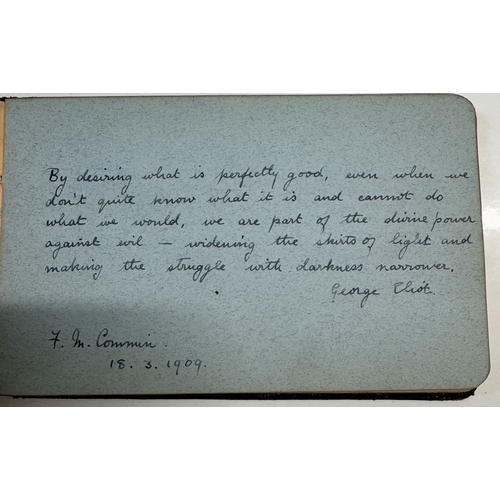 By desiring what is perfectly good, even when we
don't quite know what it is and cannot do
what we would, we are part of the divine power
against evil — widening the skirts of light and
making the struggle with darkness narrower.
George Eliot.
F. M. Commin.
18. 3. 1909.